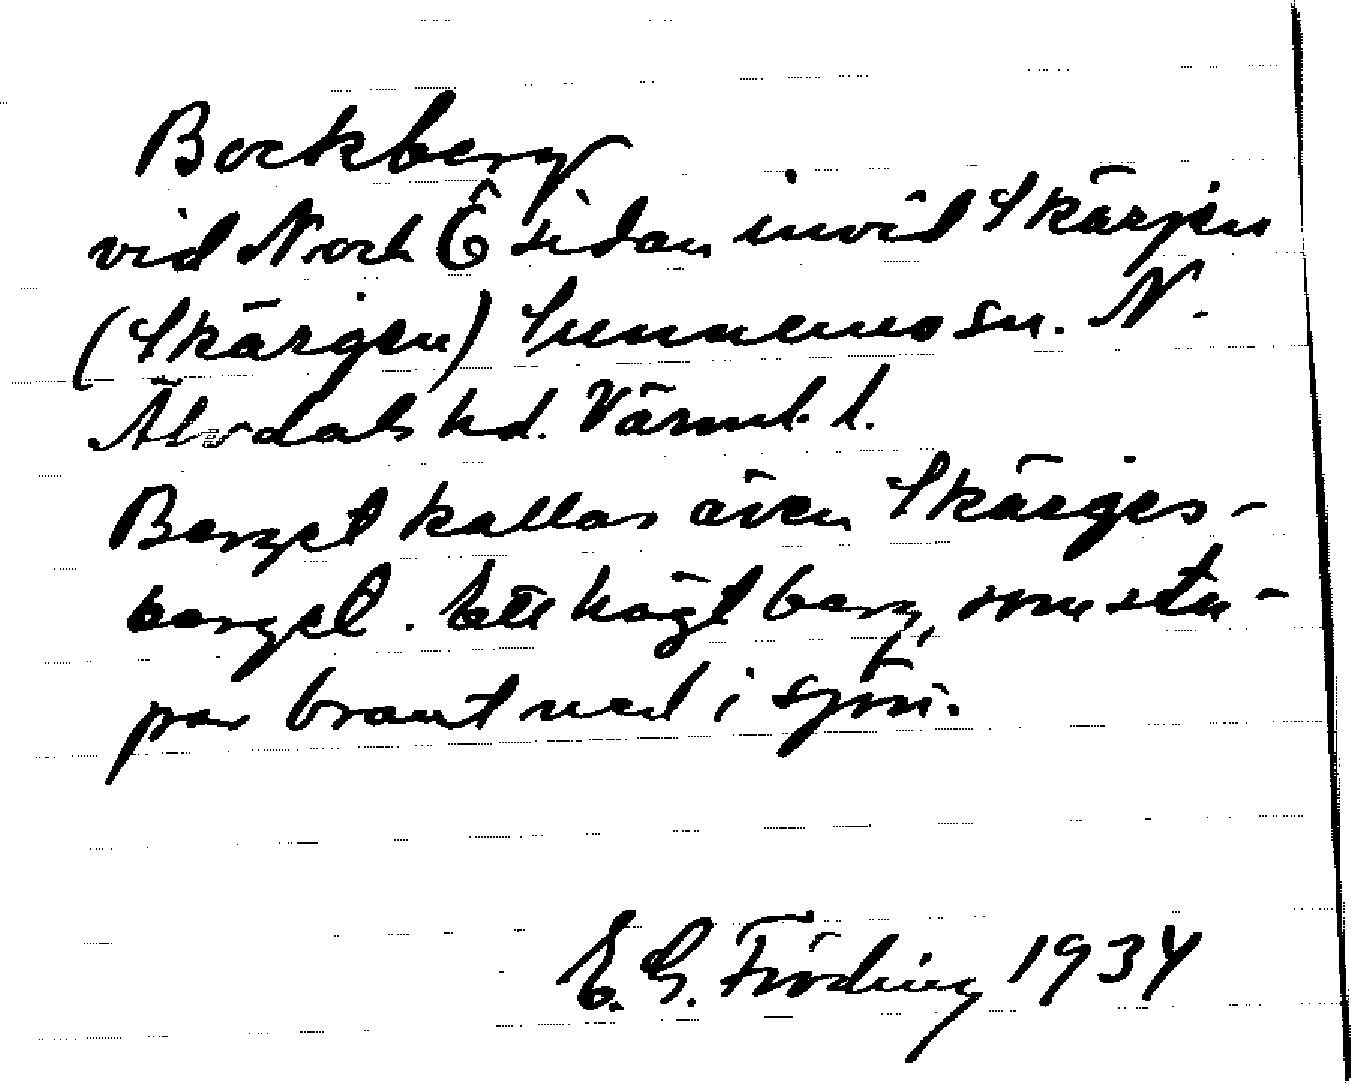 Bockberg
vid N och Ö sidan invid Skärjen
(Skärgen) Sunnemo sn. N.
Älvdals hd. Värml. l.
Berget kallas även Skärges-
berget. Ett högt berg, som stu-
par brant ned i sjön.
E. G. Fröding 1934